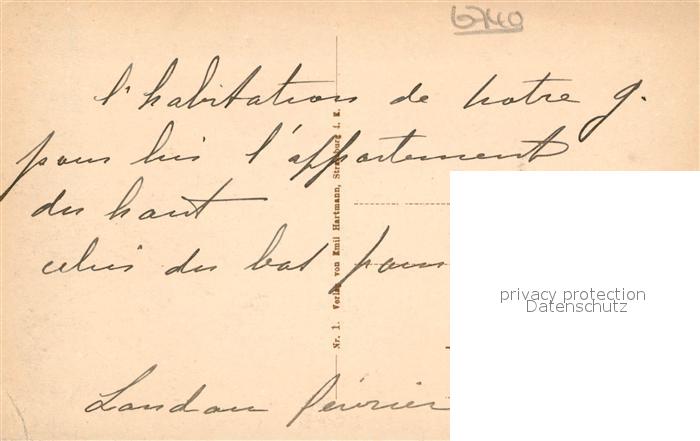 6740
l'habitation de notre g.
pour lui l'appartement
du haut
celui du bas pour
Landau février
Nr. 1. Verlag von Emil Hartmann, Strassburg i. E.
privacy protection
Datenschutz